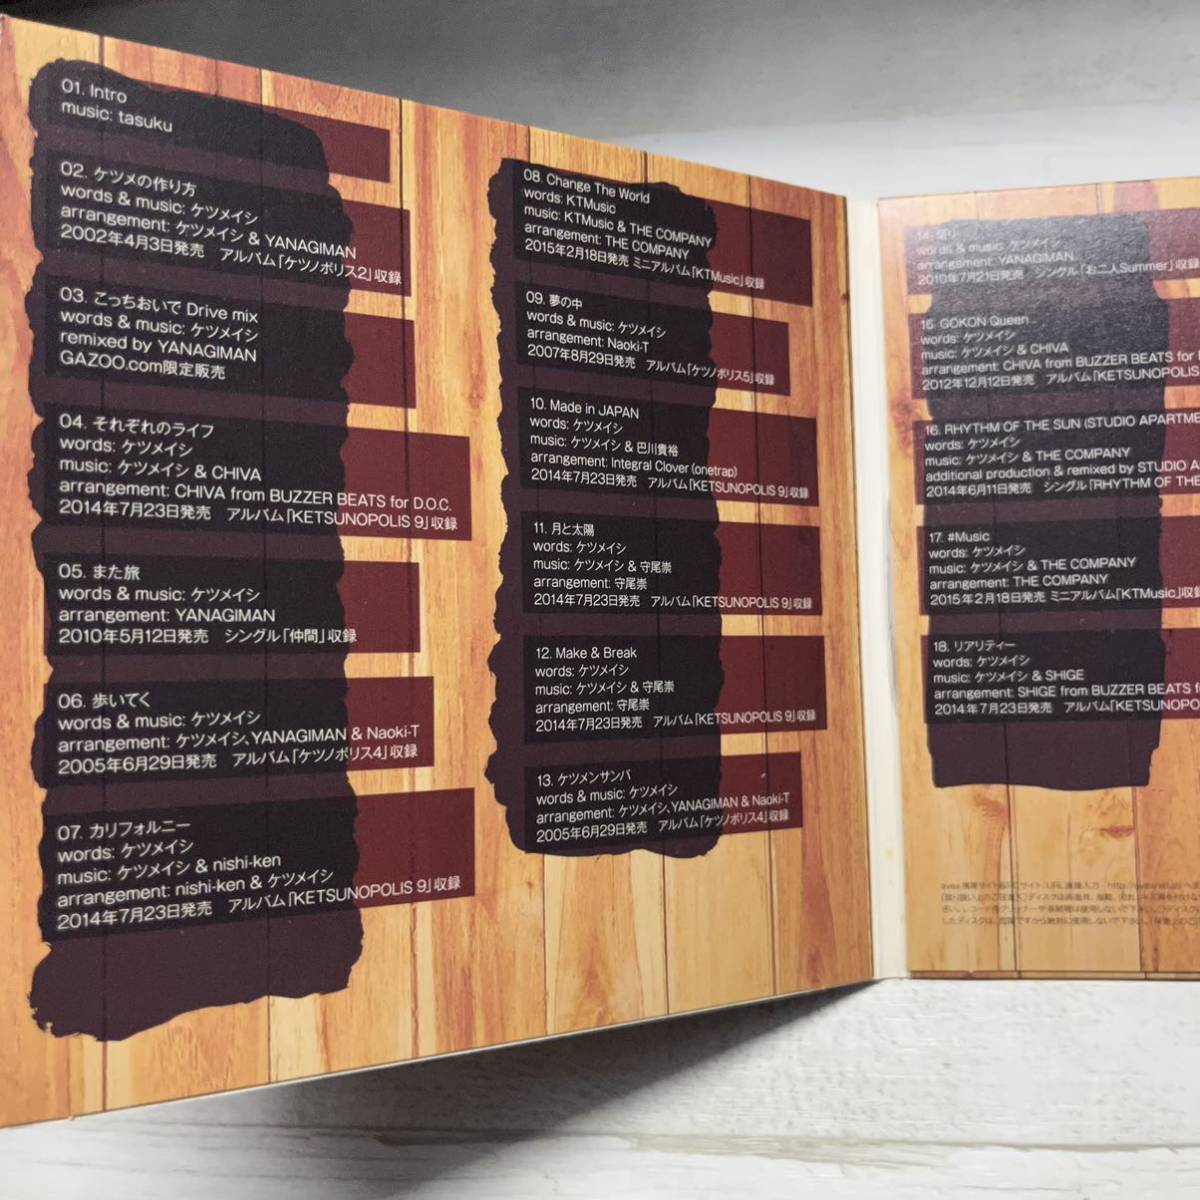 01. Intro
music: tasuku
02. ケツメの作り方
words & music: ケツメイシ
arrangement: ケツメイシ & YANAGIMAN
2002年4月3日発売　アルバム「ケツノポリス2」収録
03. こっちおいで Drive mix
words & music: ケツメイシ
remixed by YANAGIMAN
GAZOO.com限定販売
04. それぞれのライフ
words: ケツメイシ
music: ケツメイシ & CHIVA
arrangement: CHIVA from BUZZER BEATS for D.O.C.
2014年7月23日発売　アルバム「KETSUNOPOLIS 9」収録
05. また旅
words & music: ケツメイシ
arrangement: YANAGIMAN
2010年5月12日発売　シングル「仲間」収録
06. 歩いてく
words & music: ケツメイシ
arrangement: ケツメイシ、YANAGIMAN & Naoki-T
2005年6月29日発売　アルバム「ケツノポリス4」収録
07. カリフォルニー
words: ケツメイシ
music: ケツメイシ & nishi-ken
arrangement: nishi-ken & ケツメイシ
2014年7月23日発売　アルバム「KETSUNOPOLIS 9」収録
08. Change The World
words: KTMusic
music: KTMusic & THE COMPANY
arrangement: THE COMPANY
2015年2月18日発売 ミニアルバム「KTMusic」収録
09. 夢の中
words & music: ケツメイシ
arrangement: Naoki-T
2007年8月29日発売　アルバム「ケツノポリス5」収録
10. Made in JAPAN
words: ケツメイシ
music: ケツメイシ & 巴川貴裕
arrangement: Integral Clover (onetrap)
2014年7月23日発売　アルバム「KETSUNOPOLIS 9」収録
11. 月と太陽
words: ケツメイシ
music: ケツメイシ & 守尾崇
arrangement: 守尾崇
2014年7月23日発売　アルバム「KETSUNOPOLIS 9」収録
12. Make & Break
words: ケツメイシ
music: ケツメイシ & 守尾崇
arrangement: 守尾崇
2014年7月23日発売　アルバム「KETSUNOPOLIS 9」収録
13. ケツメンサンバ
words & music: ケツメイシ
arrangement: ケツメイシ、YANAGIMAN & Naoki-T
2005年6月29日発売　アルバム「ケツノポリス4」収録
14.
words & music: ケツメイシ
arrangement: YANAGIMAN
2010年7月21日発売　シングル「お二人Summer」収録
15. GOKON Queen
words: ケツメイシ
music: ケツメイシ & CHIVA
arrangement: CHIVA from BUZZER BEATS for
2012年12月12日発売　アルバム「KETSUNOPOLIS
16. RHYTHM OF THE SUN (STUDIO APARTME
words: ケツメイシ
music: ケツメイシ & THE COMPANY
additional production & remixed by STUDIO A
2014年6月11日発売　シングル「RHYTHM OF THE
17. #Music
words: ケツメイシ
music: ケツメイシ & THE COMPANY
arrangement: THE COMPANY
2015年2月18日発売 ミニアルバム「KTMusic」収録
18. リアリティー
words: ケツメイシ
music: ケツメイシ & SHIGE
arrangement: SHIGE from BUZZER BEATS f
2014年7月23日発売　アルバム「KETSUNOPO